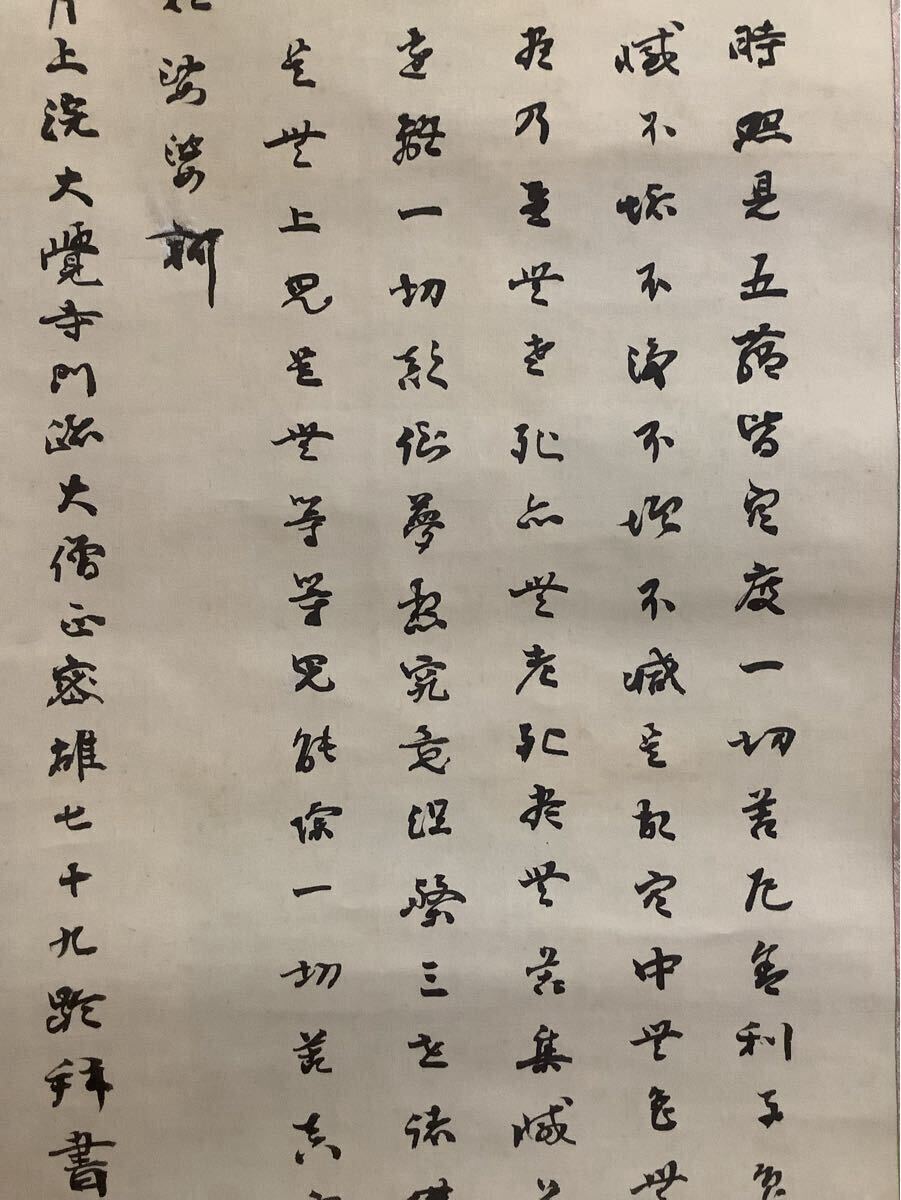 時照見五蘊皆空度一切苦厄舎利子色
滅不垢不浄不増不減是故空中無色無
至乃至無老死亦無老死尽無苦集滅道
遠離一切顛倒夢想究竟涅槃三世諸仏
是無上咒是無等等咒能除一切苦真
娑婆訶
月上浣大覺寺門跡大僧正密雄七十九齢拝書